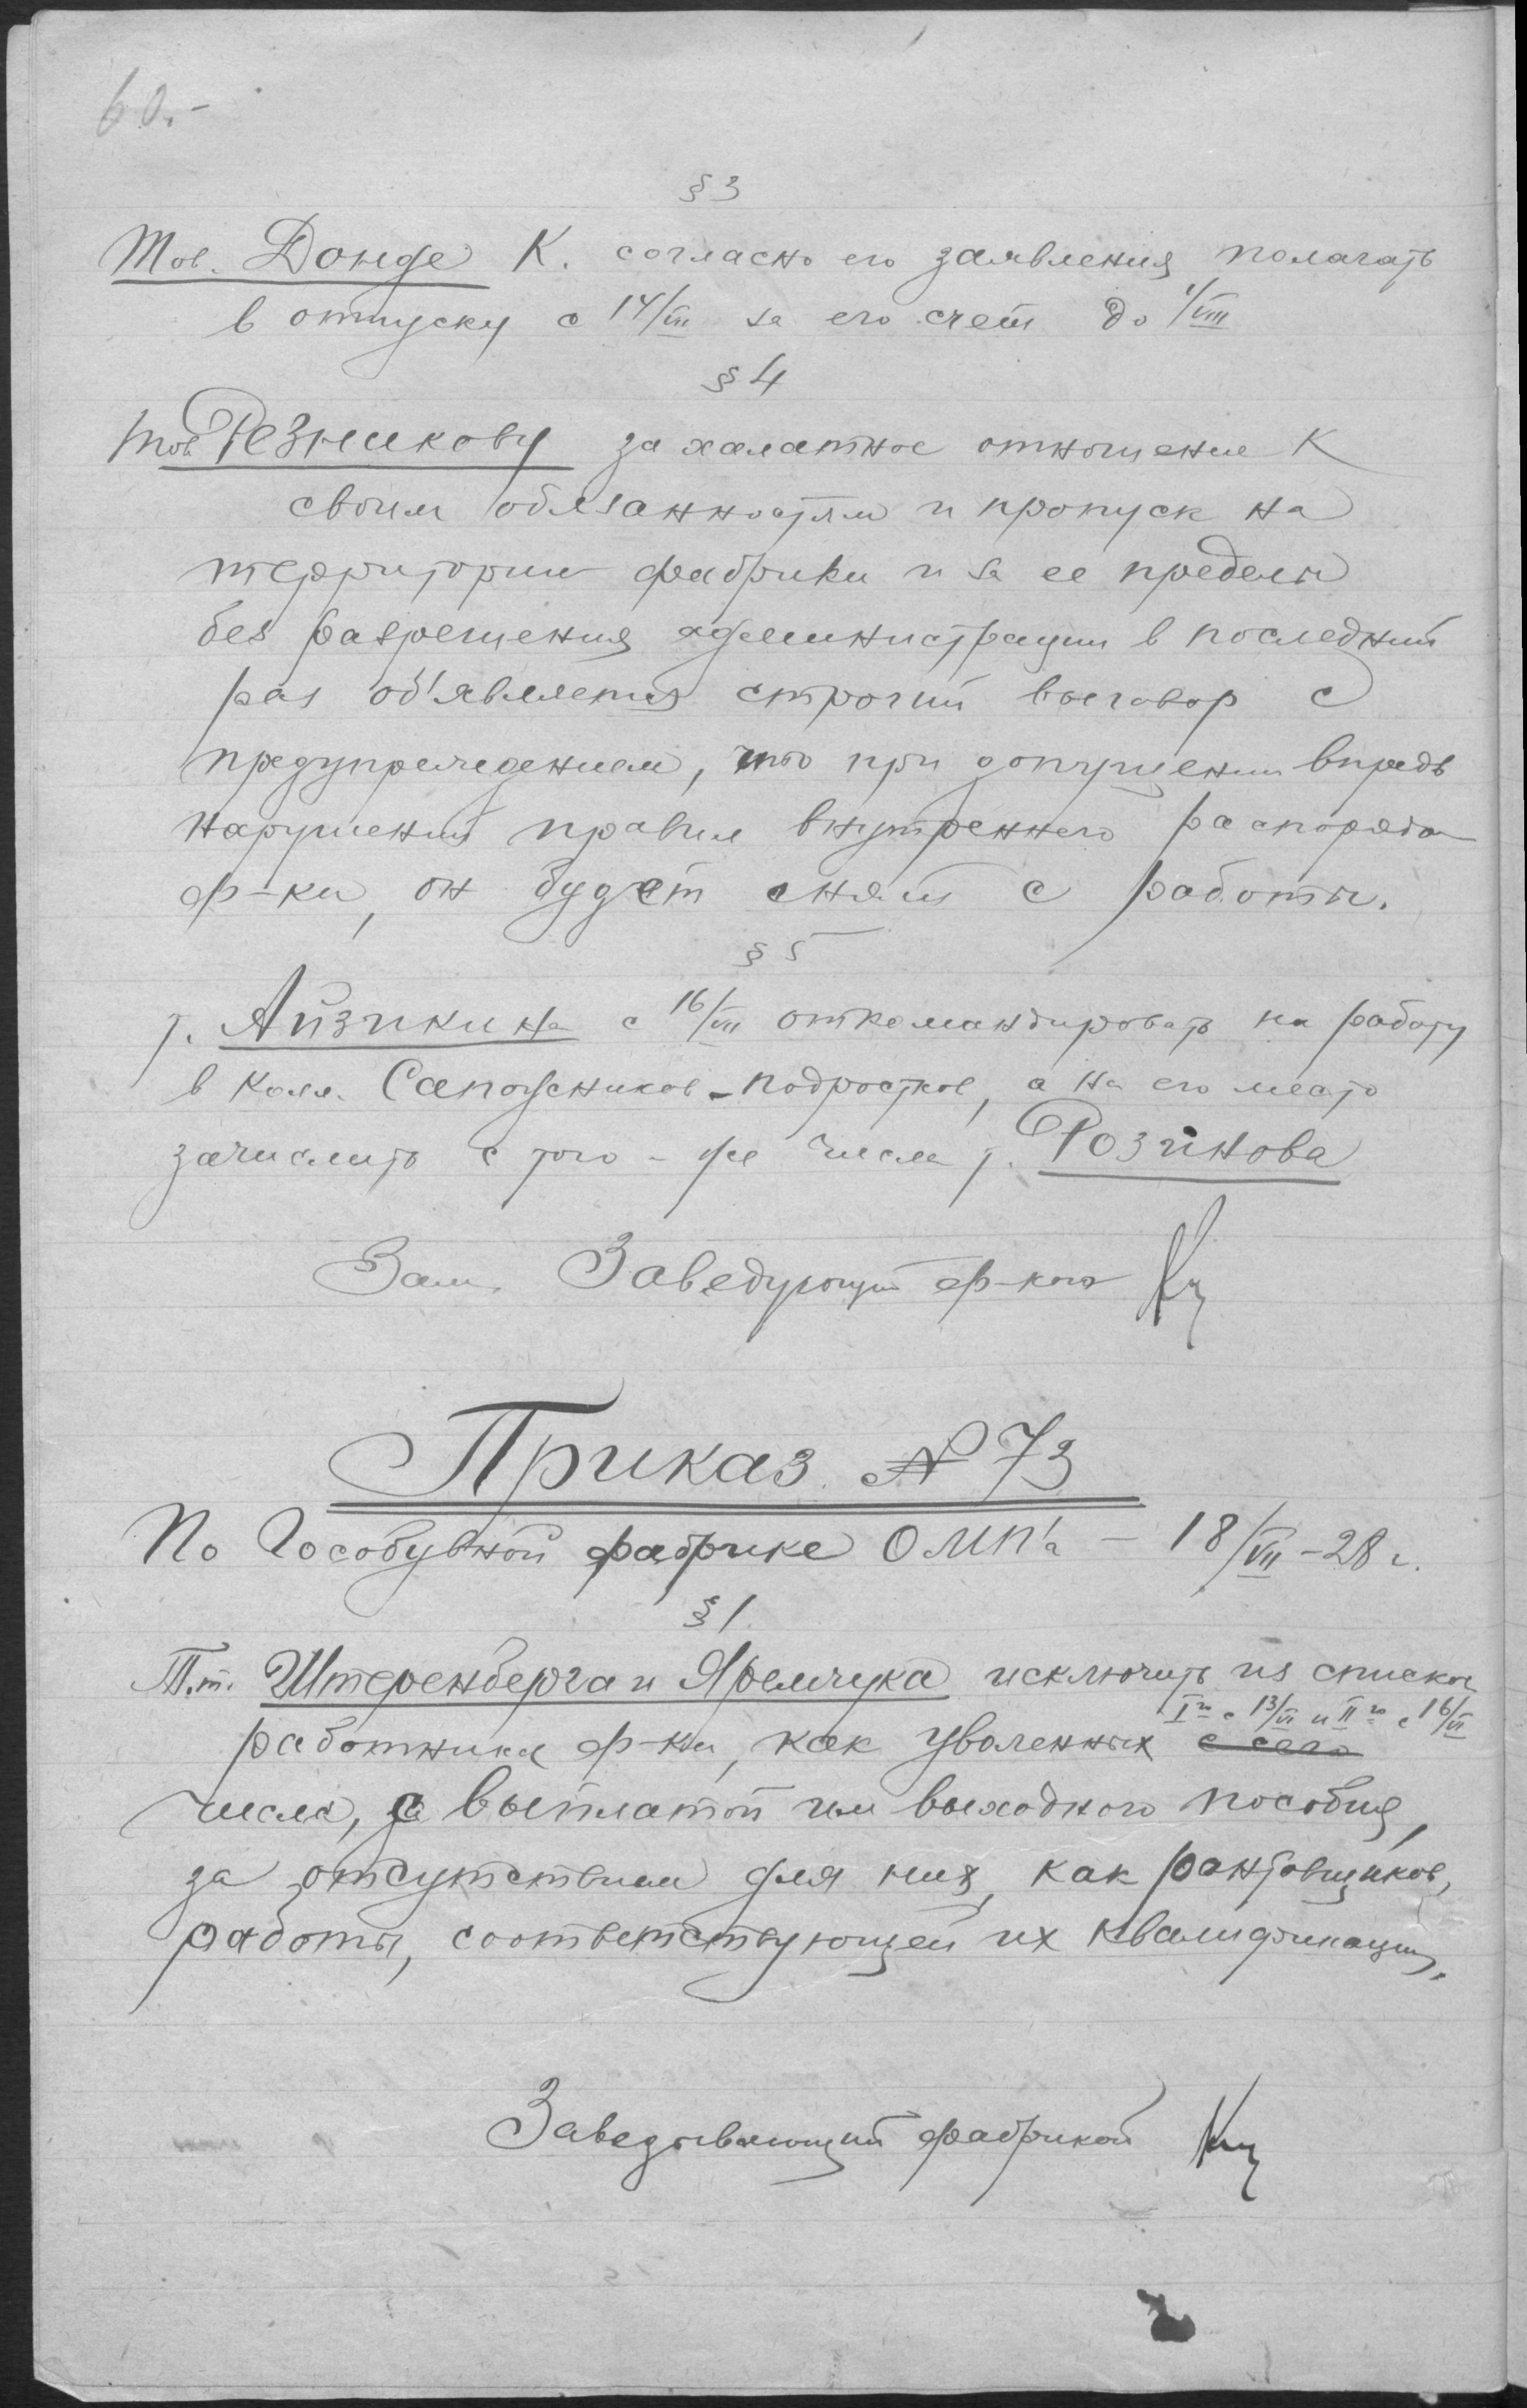 60.-
§ 3
Тов. Донде К. согласно его заявления полагать
в отпуску с 14/VII за его счет до 1/VIII
§ 4
Тов. Резникову за халатное отношение к
своим обязанностям и пропуск на
территории фабрики и за ее пределы
без разрешения администрации в последний
раз об'является строгий выговор с
предупреждением, что при допущении впредь
нарушений правил внутреннего распорядка
ф-ки, он будет снят с работы.
§ 5
т. Айзикина с 16/VII откомандировать на работу
в Колл. Сапожников-подростков, а на его место
зачислить с того-же числа т. Розинова
Зам. Заведующий ф-кой
Приказ № 73
По Гособувной фабрике ОМП'а - 18/VII-28 г.
§ 1.
Т.т. Штеренберга и Яремчука исключить из списков
I го с 13/VI и II го с 16/VI
работников ф-ки, как уволенных с сего
числа, с выплатой им выходного пособия,
за отсутствием для них, как рантовщиков,
работы, соответствующей их квалификации.
Заведывающий фабрикой